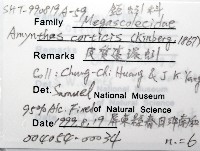 SHT-990819A-59 鉅蚓科
Family Megascolecidae
Amynthas corticis (Kinberg, 1867)
Remarks
Coll: Chung-Chi Huang & J. K. Yang
Det. Samuel National Museum
95% Alc. Fixed of Natural Science
Date 1999. 8. 19
004054-00034 n=6